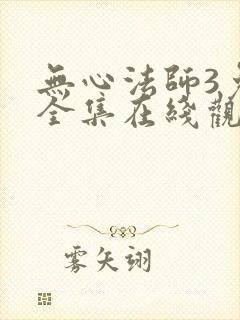 無心法師3
全集在綫觀
雾矢翊